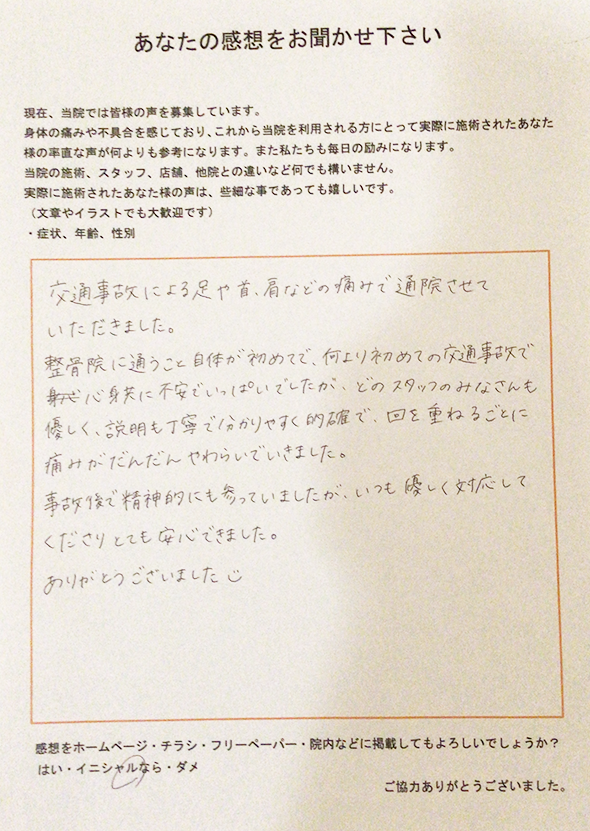 あなたの感想をお聞かせ下さい
現在、当院では皆様の声を募集しています。
身体の痛みや不具合を感じており、これから当院を利用される方にとって実際に施術されたあなた
様の率直な声が何よりも参考になります。また私たちも毎日の励みになります。
当院の施術、スタッフ、店舗、他院との違いなど何でも構いません。
実際に施術されたあなた様の声は、些細な事であっても嬉しいです。
（文章やイラストでも大歓迎です）
・症状、年齢、性別
交通事故による足や首、肩などの痛みで通院させて
いただきました。
整骨院に通うこと自体が初めてで、何より初めての交通事故で
心身共に不安でいっぱいでしたが、どのスタッフのみなさんも
優しく、説明も丁寧で分かりやすく的確で、回を重ねるごとに
痛みがだんだんやわらいでいきました。
事故後で精神的にも参っていましたが、いつも優しく対応して
くださりとても安心できました。
ありがとうございました
感想をホームページ・チラシ・フリーペーパー・院内などに掲載してもよろしいでしょうか？
はい・イニシャルなら・ダメ
ご協力ありがとうございました。